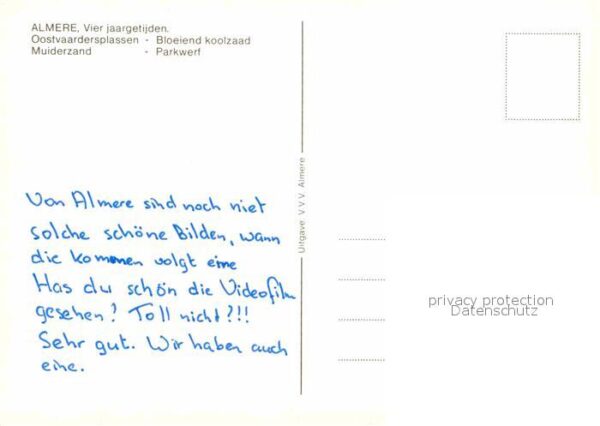 ALMERE, Vier jaargetijden.
Oostvaardersplassen - Bloeiend koolzaad
Muiderzand - Parkwerf
Uitgave: V.V.V. Almere
Von Almere sind noch niet
solche schöne Bilden, wann
die kommen volgt eine
Has du schön die Videofilm
gesehen? Toll nicht?!!!
Sehr gut. Wir haben auch
eine.
privacy protection
Datenschutz